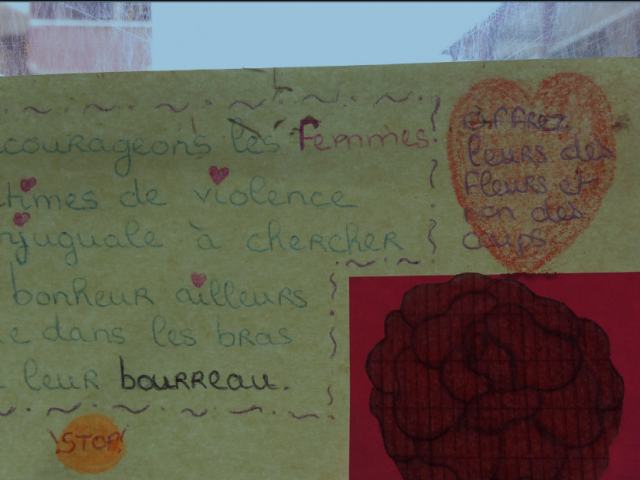 courageons les Femmes
times de violence
njuguale à chercher
bonheur ailleurs
e dans les bras
leur bourreau.
STOP!
offrez
leurs des
Fleurs et
non des
coups